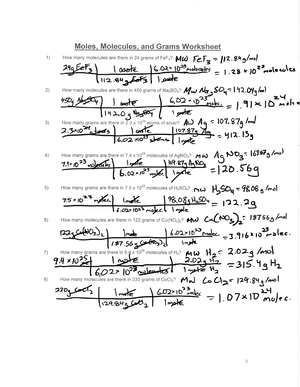 Moles, Molecules, and Grams Worksheet
1) How many molecules are there in 24 grams of FeF3? MW FeF3 = 112.84 g/mol
24g FeF3 | 1 mole | 6.02 × 10^23 molecules = 1.28 × 10^23 molecules
112.84 g FeF3 | 1 mole
2) How many molecules are there in 450 grams of Na2SO4? MW Na2SO4 = 142.04 g/mol
450g Na2SO4 | 1 mole | 6.02 × 10^23 = 1.91 × 10^24
1 mole
3) How many grams are there in 2.3 x 10^24 atoms of silver? AW Ag = 107.87 g/mol
2.3×10^24 atoms | 1 mole | 107.87g = 412.13g
6.02×10^23 atoms | 1 mole
4) How many grams are there in 7.4 x 10^23 molecules of AgNO3? MW AgNO3
1 mole = 120.56g
6.02×10^23 | 1 mole
5) How many grams are there in 7.5 x 10^23 molecules of H2SO4? MW H2SO4 = 98.08 g/mol
7.5×10^23 | 1 mole | 98.08g H2SO4 = 122.2g
6.02×10^23 molec | 1 mole
6) How many molecules are there in 122 grams of Cu(NO3)2? MW Cu(NO3)2 = 187.56 g/mol
122g Cu(NO3)2 | 1 mole | 6.02×10^23 molec = 3.916×10^23 molec.
187.56 g Cu(NO3)2 | 1 mole
7) How many grams are there in 9.4 x 10^25 molecules of H2? MW H2 = 2.02 g/mol
9.4×10^25 | 1 mole | 2.02g H2 = 315.4g H2
6.02 × 10^23 molecules | 1 mole H2
8) How many molecules are there in 230 grams of CoCl2? MW CoCl2 = 129.84 g/mol
230g CoCl2 | 1 mole | 6.02×10^23 molec = 1.07×10^24 molec.
129.84g CoCl2 | 1 mole
6